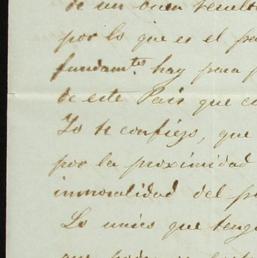 de un buen result
por lo que es el pa
fundamtos. hay para p
de este Pais que e
Yo te confiezo, que
por la proximidad
inmoralidad del p
Lo unico que teng